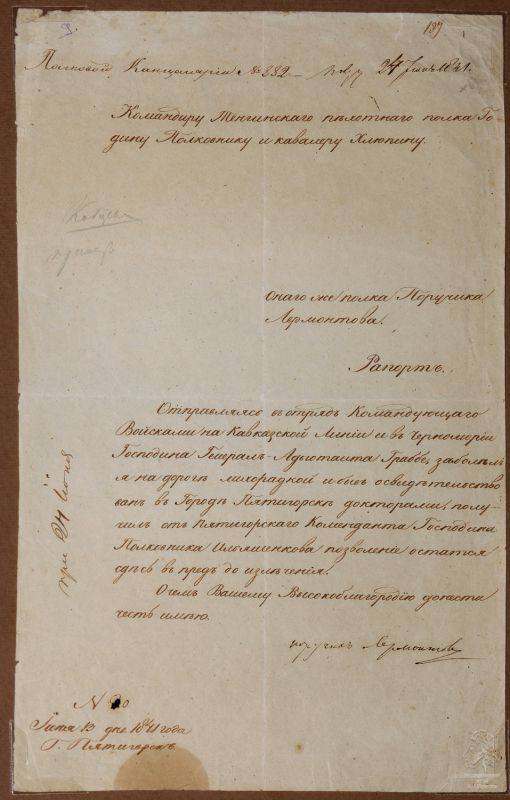 137
Полковой Канцеляріи № 332 24 Іюня 1841.
Командиру Тенгинскаго пѣхотнаго полка Го-
дину Полковнику и кавалеру Хлюпину.
онаго же полка Поручика
Лермонтова.
Рапортъ.
Отправляясь въ отрядъ Командующаго
Войсками на Кавказской Линіи и въ Черноморіи
Господина Генералъ-Адъютанта Граббе, заболѣлъ
я на дорогѣ лихорадкой и бывъ освидѣтельство-
ванъ въ Городѣ Пятигорскѣ докторами, полу-
чилъ отъ Пятигорскаго Коменданта Господина
Полковника Ильяшенкова позволеніе остатся
сдѣсь въ предь до излѣченія.
О чемъ Вашему Высокоблагородію донести
честь имѣю.
поручикъ Лермонтовъ
при 24 Іюня
Іюня 13 дня 1841 года
Г. Пятигорскъ